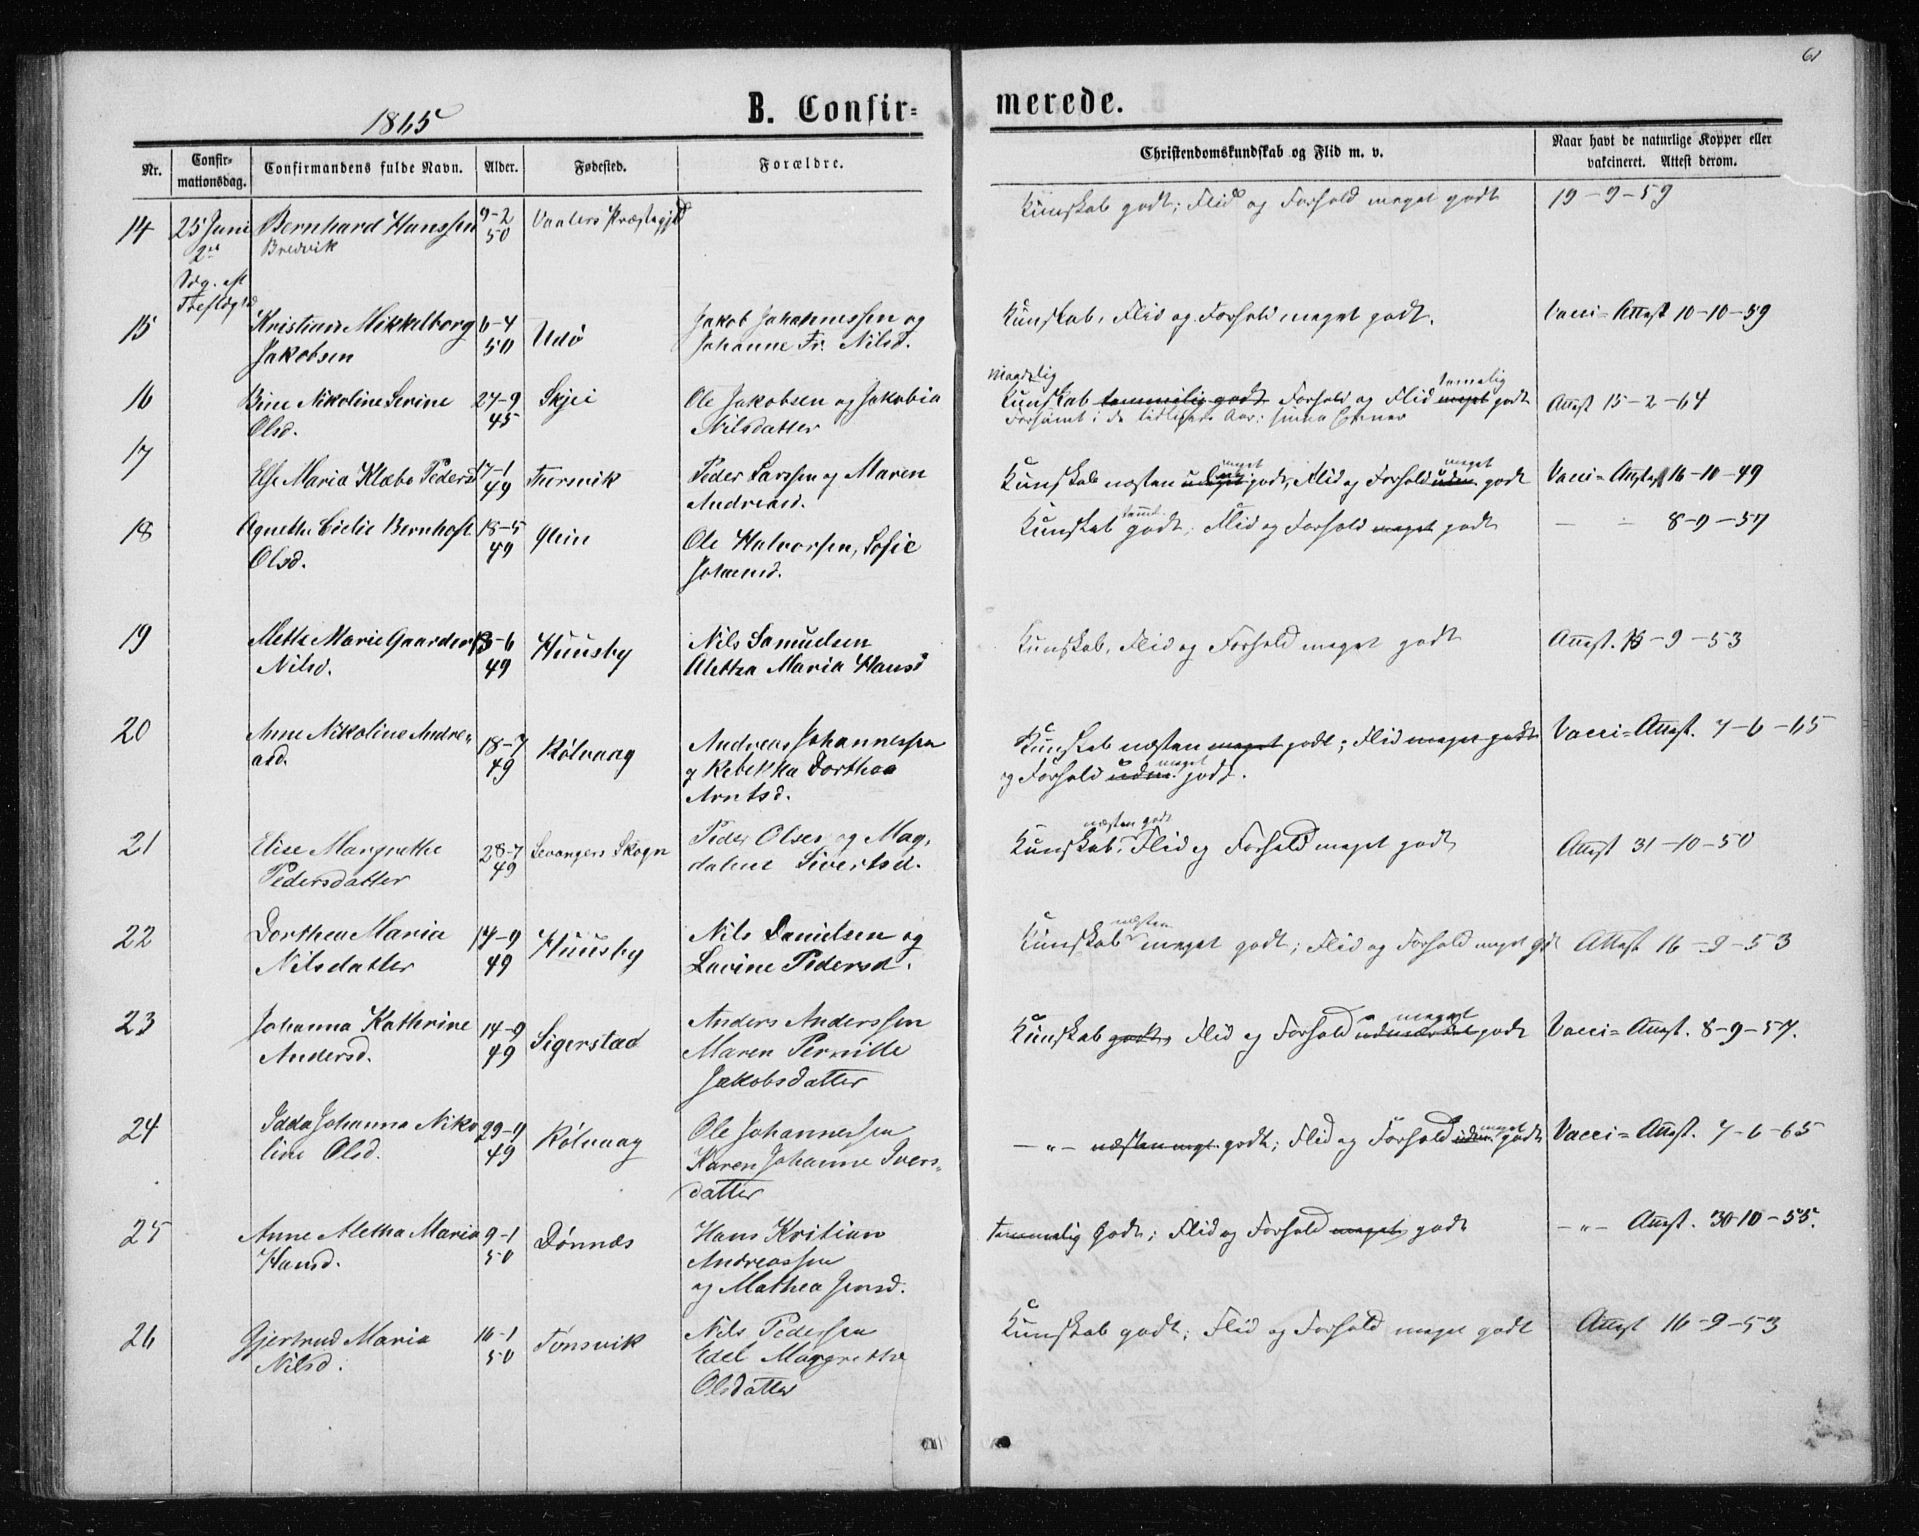 61
1865
B. Confirmerede.
Nr. Confirmationsdag. Confirmandens fulde Navn. Alder. Fødested. Forældre. Christendomskundskab og Flid m. v. Naar havt de naturlige Kopper eller vakcineret. Attest derom.
14 25 Juni Bernhard Hanssen 9-2 50 Vaalers Præstegjd Kunskab godt; Flid og Forhold meget godt 19-9-59
Bredvik
Trefldgsd
15 Kristian Mikkelborg 6-4 50 Udø Jakob Johannessen og Kunskab, Flid og Forhold meget godt. Vacci-Attest 10-10-59
Jakobsen Johanne Fr. Nilsd.
16 Bine Nikoline Serine 27-9 45 Skjei Ole Jakobsen og Jakobia Maadelig Kunskab temmelig godt Forhold og Flid meget temelig godt Attest 15-2-64
Olsd. Nilsdatter Forsømt i de tidligere Aar:
17 Else Maria Klæbo Pedersd 17-1 49 Tursvik Peder Larssen og Maren Kunskab næsten meget godt, Flid og Forhold uden meget godt Vacci-Attest 16-10-49
Andreasd.
18 Agnethe Cicilie Bernhoft 18-5 49 Glein Ole Halvorsen, Sofie Kunskab temt. godt, Flid og Forhold meget godt - - 8-9-57
Olsd. Johansd.
19 Mette Marie Gaarder 13-6 49 Huusby Nils Samuelsen Kunskab, Flid og Forhold meget godt Attest. 16-9-53
Nilsd. Alethea Maria Hansd
20 Anne Nikoline Andre= 18-7 49 Kølvaag Andreas Johannessen Kunskab næsten meget godt; Flid meget godt Vacci-Attest. 7-6-65
asd. og Rebekka Dorthea og Forhold uden meget godt.
Arntsd.
21 Elise Margrethe 28-7 49 Levangers Skogn Peder Olsen og Mag, Kunskab, næsten godt Flid og Forhold meget godt Attest 31-10-50
Pedersdatter dalene Sivertsd.
22 Dorthea Maria 14-9 49 Huusby Nils Danielsen og Kunskab næsten meget godt; Flid og Forhold meget gdt Attest 16-9-53
Nilsdatter Lavine Pedersd.
23 Johanna Kathrine 14-9 49 Sigerstad Anders Anderssen Kunskab godt, Flid og Forhold udmærket meget godt Vacci-Attest. 8-9-57.
Andersd. Maren Pernille
Jakobsdatter
24 Idda Johanna Niko 29-9 49 Kølvaag Ole Johannessen -"- næsten megt. godt; Flid og Forhold uden meget godt Vacci-Attest. 7-6-65
line Olsd. Karen Johanne Ivers=
datter
25 Anne Aletha Maria 9-1 50 Dønnæs Hans Kristian temmelig Godt; Flid og Forhold meget godt -"- Attest. 30-10-55.
Hansd. Andreassen
og Mathea Jensd.
26 Gjertrud Maria 16-1 50 Tonsvik Nils Pedersen Kunskab godt; Flid og Forhold meget godt Attest 16-9-53
Nilsd. Edel Margrethe
Olsdatter